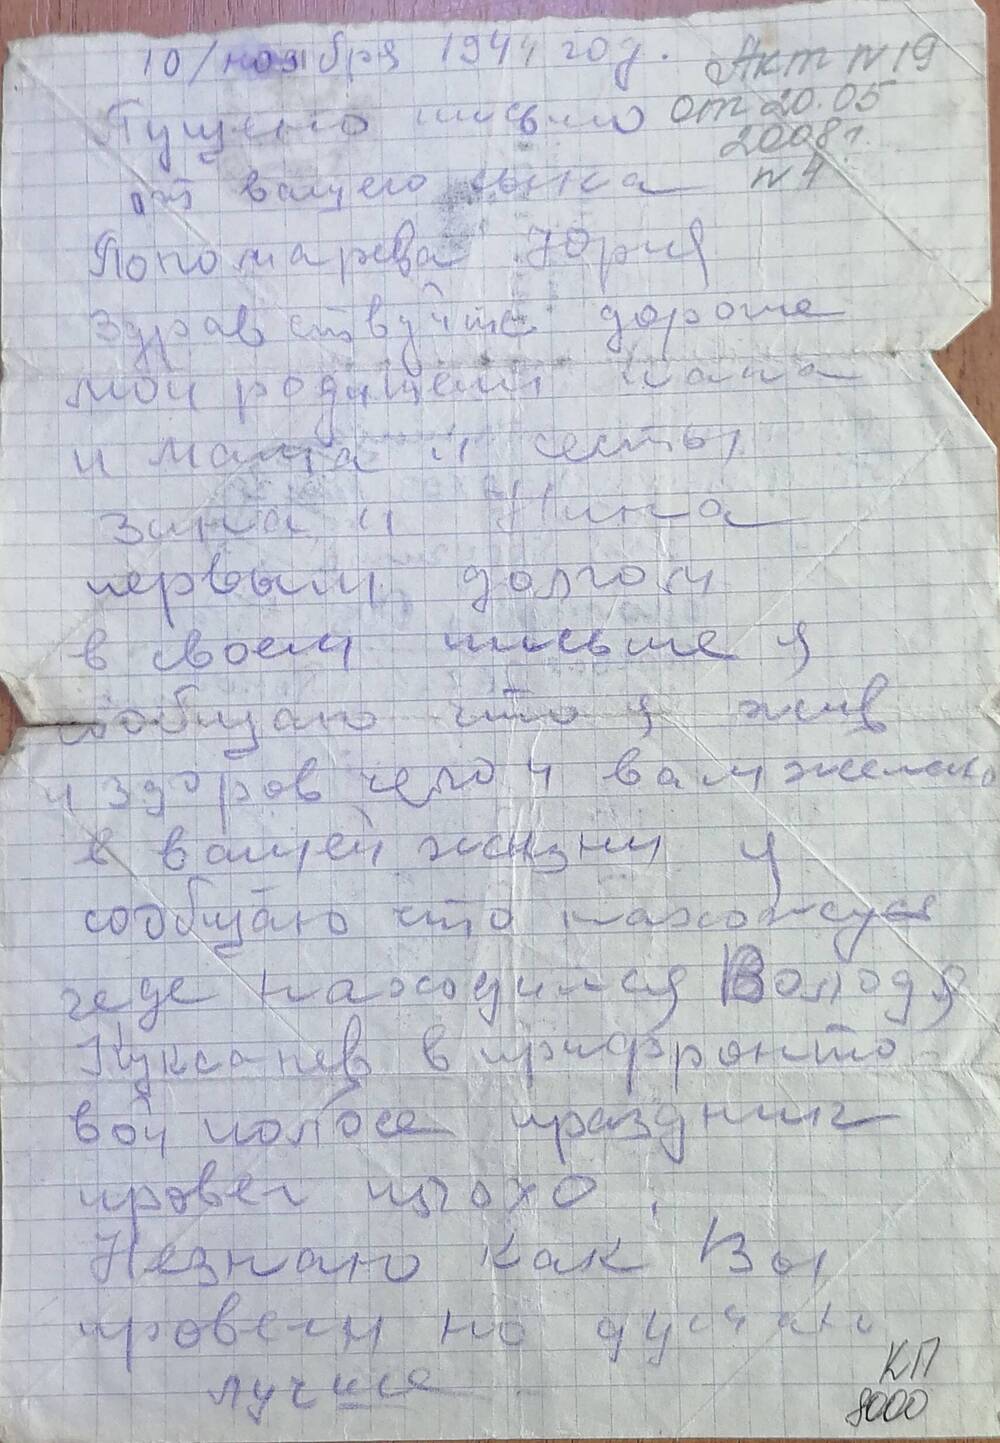 10/ноября 1944 год.
Акт N 19
от 20.05
2008 г.
N 4
Пущено письмо
от вашего сынка
Пономарева Юрия
Здравствуйте дороже
мои родители папа
и мама и сесты
Зина и Нина
первым долгом
в своем письме я
сообщаю что я жив
и здоров чего и вам желаю
в вашей жизни я
сообщаю что нахожусь
где находился Володя
в прифронто-
вой полосе праздник
провел плохо.
Незнаю как Вы
провели но думаю
лучше.
КП
8000